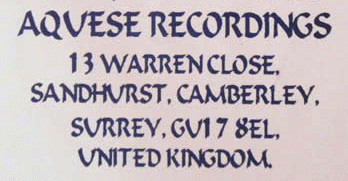 AQUESE RECORDINGS
13 WARREN CLOSE,
SANDHURST, CAMBERLEY,
SURREY, GU17 8EL,
UNITED KINGDOM.